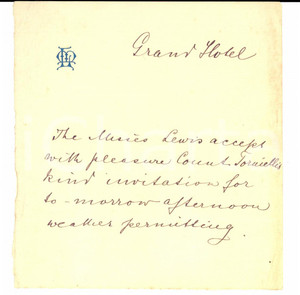 Grand Hotel
The Misses Lewis accept
with pleasure Count Tornielli's
kind invitation for
to-morrow afternoon
weather permitting.